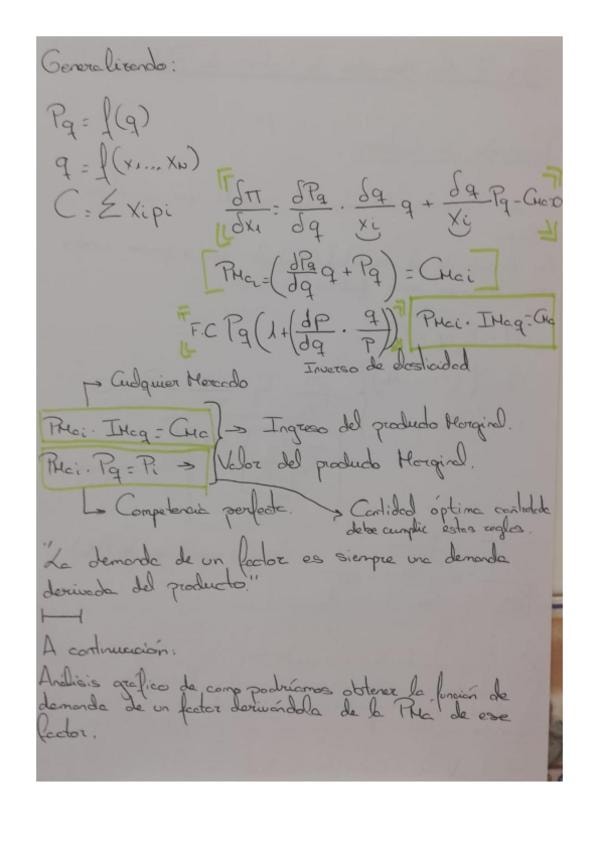 Generalizando:
Pq = f(q)
q = f(x1, ..., xN)
C = Σ xipi
δΠ/δx1 = δPq/δq · δq/xi q + δq/xi Pq - CMa=0
[PMa = (δPq/δq q + Pq) = CMai]
F.C Pq (1 + (dp/dq · q/p)) PMai · IMaq = CMa
Inverso de elasticidad
Cualquier Mercado
PMai · IMaq = CMa → Ingreso del producto Marginal.
PMai · Pq = Pi → Valor del producto Marginal.
Competencia perfecta. Cantidad óptima
debe cumplir estas reglas.
"La demanda de un factor es siempre una demanda
derivada del producto."
A continuación:
Análisis gráfico de como podríamos obtener la función de
demanda de un factor derivándola de la PMa de ese
factor.